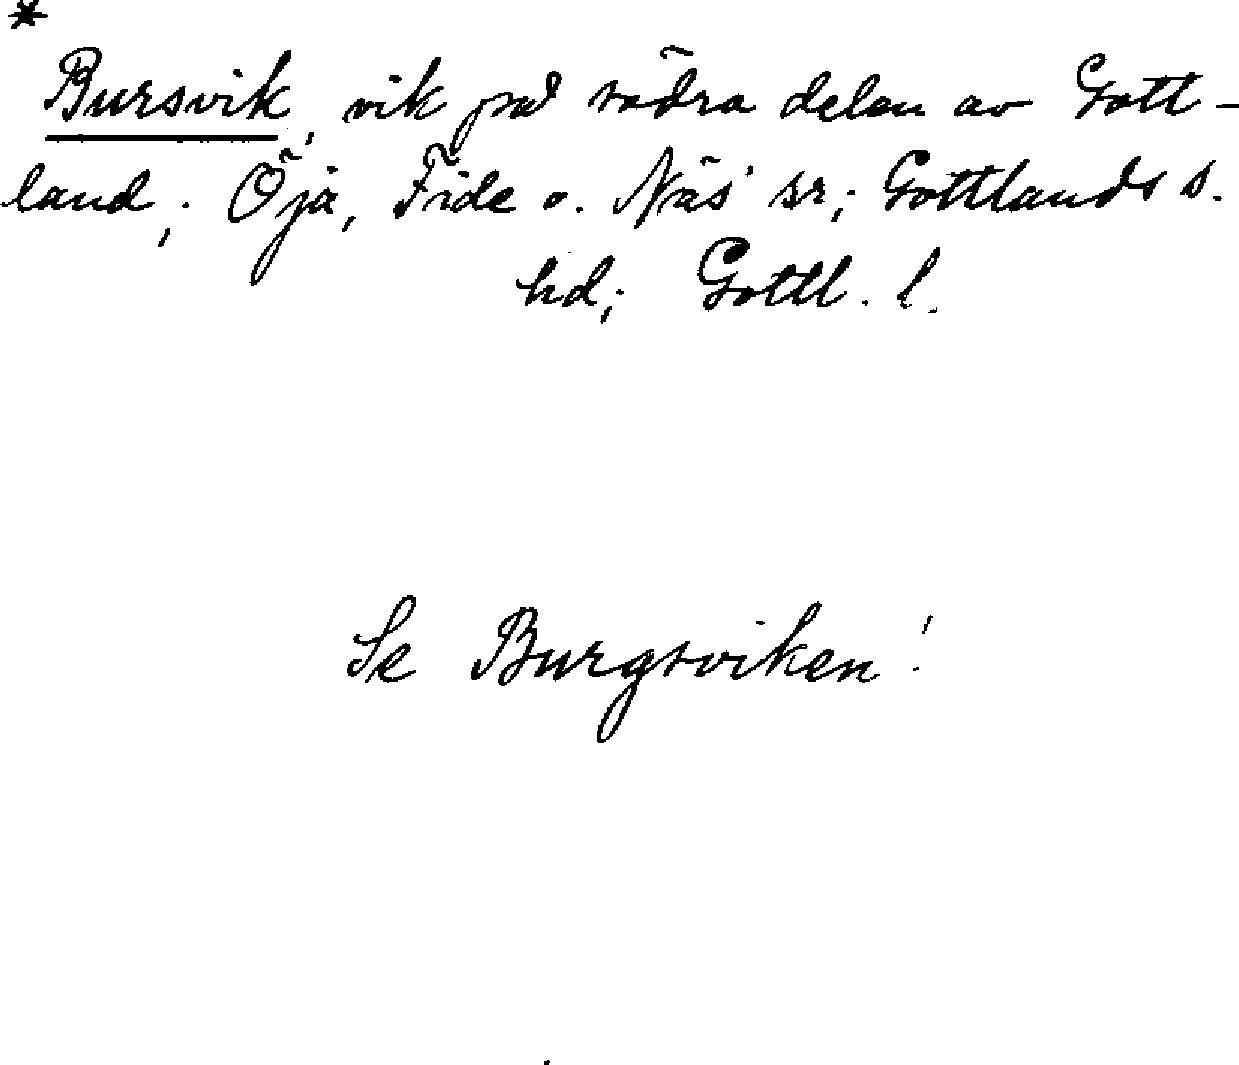 *
Bursvik, vik på södra delen av Gott-
land; Öja, Fide o. Näs' sr; Gottlands s.
hd; Gottl. l.
Se Burgsviken!